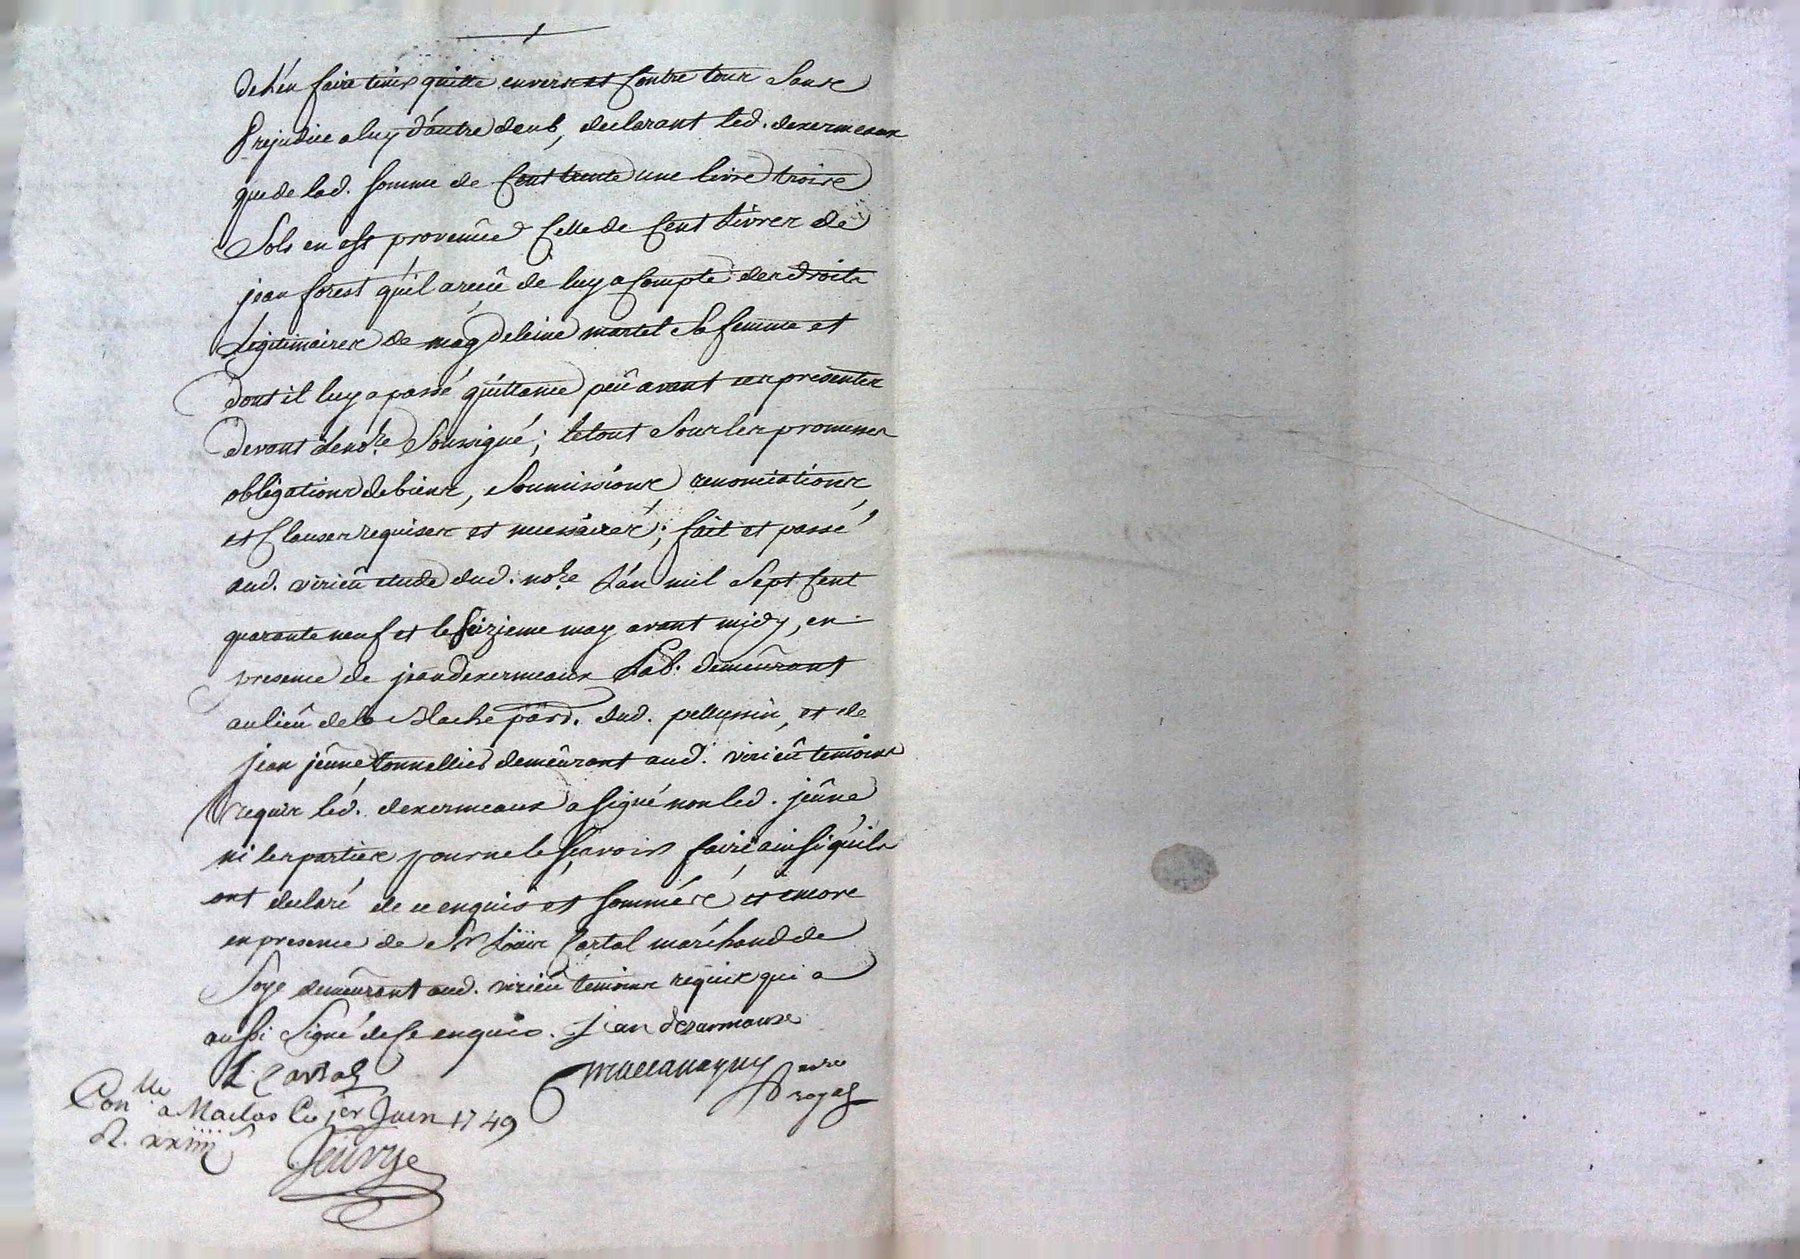 de l'en faire tenir quitte envers et contre tous sans
prejudice a luy d'autre deub, declarant led. desermeaux
que de lad. somme de cent trente une livre trois
sols en est provenüe celle de cent livres de
jean forest qu'il a receû de luy a compte des droits
legitimaires de magdeleine martel sa femme et
dont il luy a passé quittance peû avant ces presentes
devant le no.re soussigné; le tout sous les promesses
obligations de biens, soumissions renonciations
et clauses requises et necessaires; fait et passé
aud. virieû etude dud. no.re l'an mil sept cent
quarante neuf et le seizieme may avant midy, en
presence de jean desermeaux lab. demeûrant
au lieû de la Blache parr. dud. pellussin, et de
jean jeûne tonnellier demeûrant aud. virieû temoins
requis led. desermeaux a signé non led. jeûne
ni les parties pour ne le sçavoir faire ainsi qu'ils
ont declaré de ce enquis et sommés et encore
en presence de Sr Loüis Cartal marchand de
soye demeûrant aud. virieû temoins requis qui a
aussi signé de ce enquis. jean desarmaux
L. Cartal
no.re
royal
Con.lle a Maclas le 1er Juin 1749
R. xxiiii s